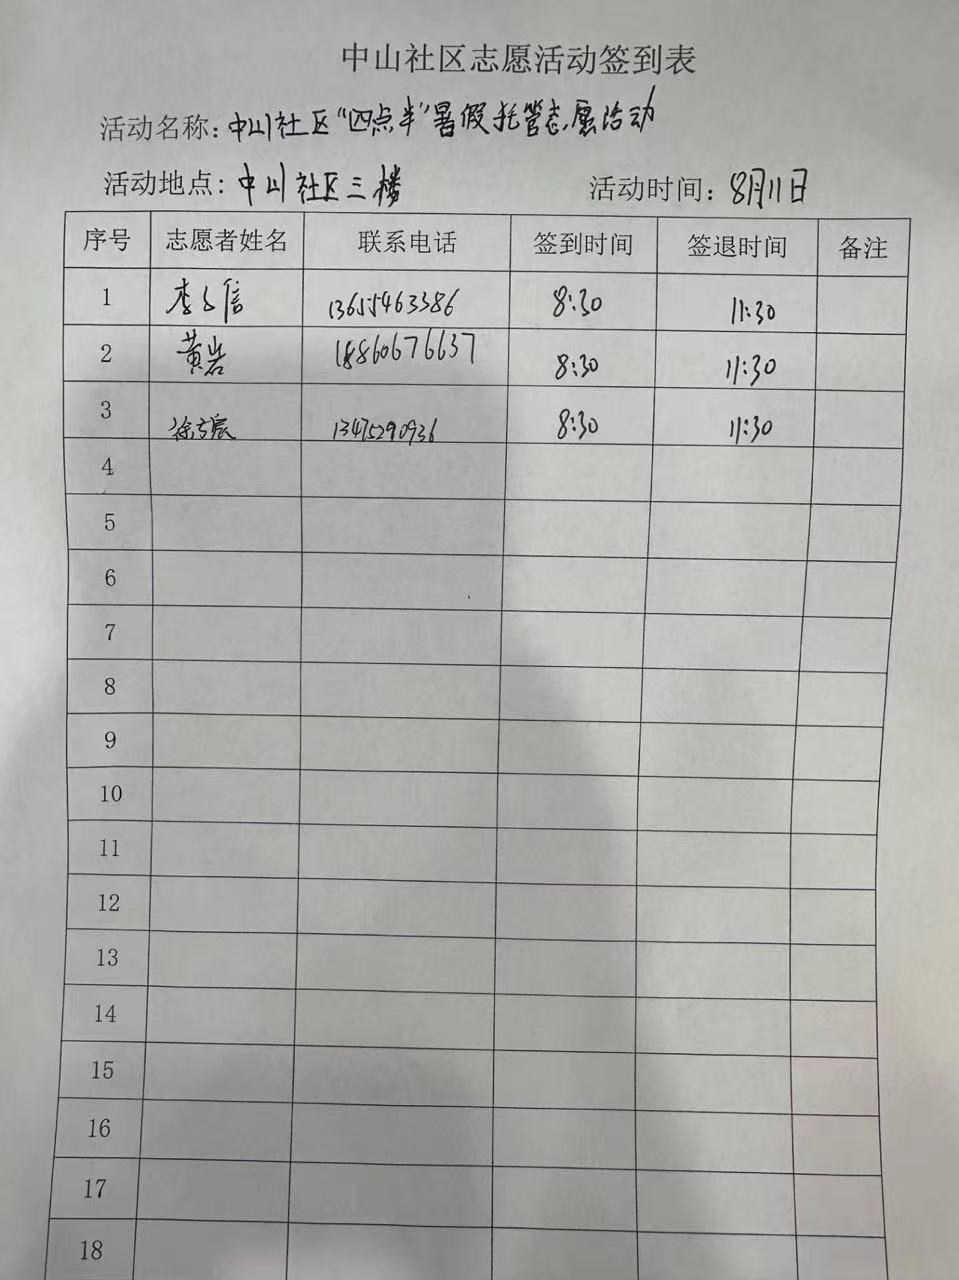 中山社区志愿活动签到表
活动名称：中山社区“四点半”暑假托管志愿活动
活动地点：中山社区三楼 活动时间：8月11日
序号 志愿者姓名 联系电话 签到时间 签退时间 备注
1 李子信 13655463386 8:30 11:30
2 黄岩 18860676637 8:30 11:30
3 徐 13475290936 8:30 11:30
4
5
6
7
8
9
10
11
12
13
14
15
16
17
18